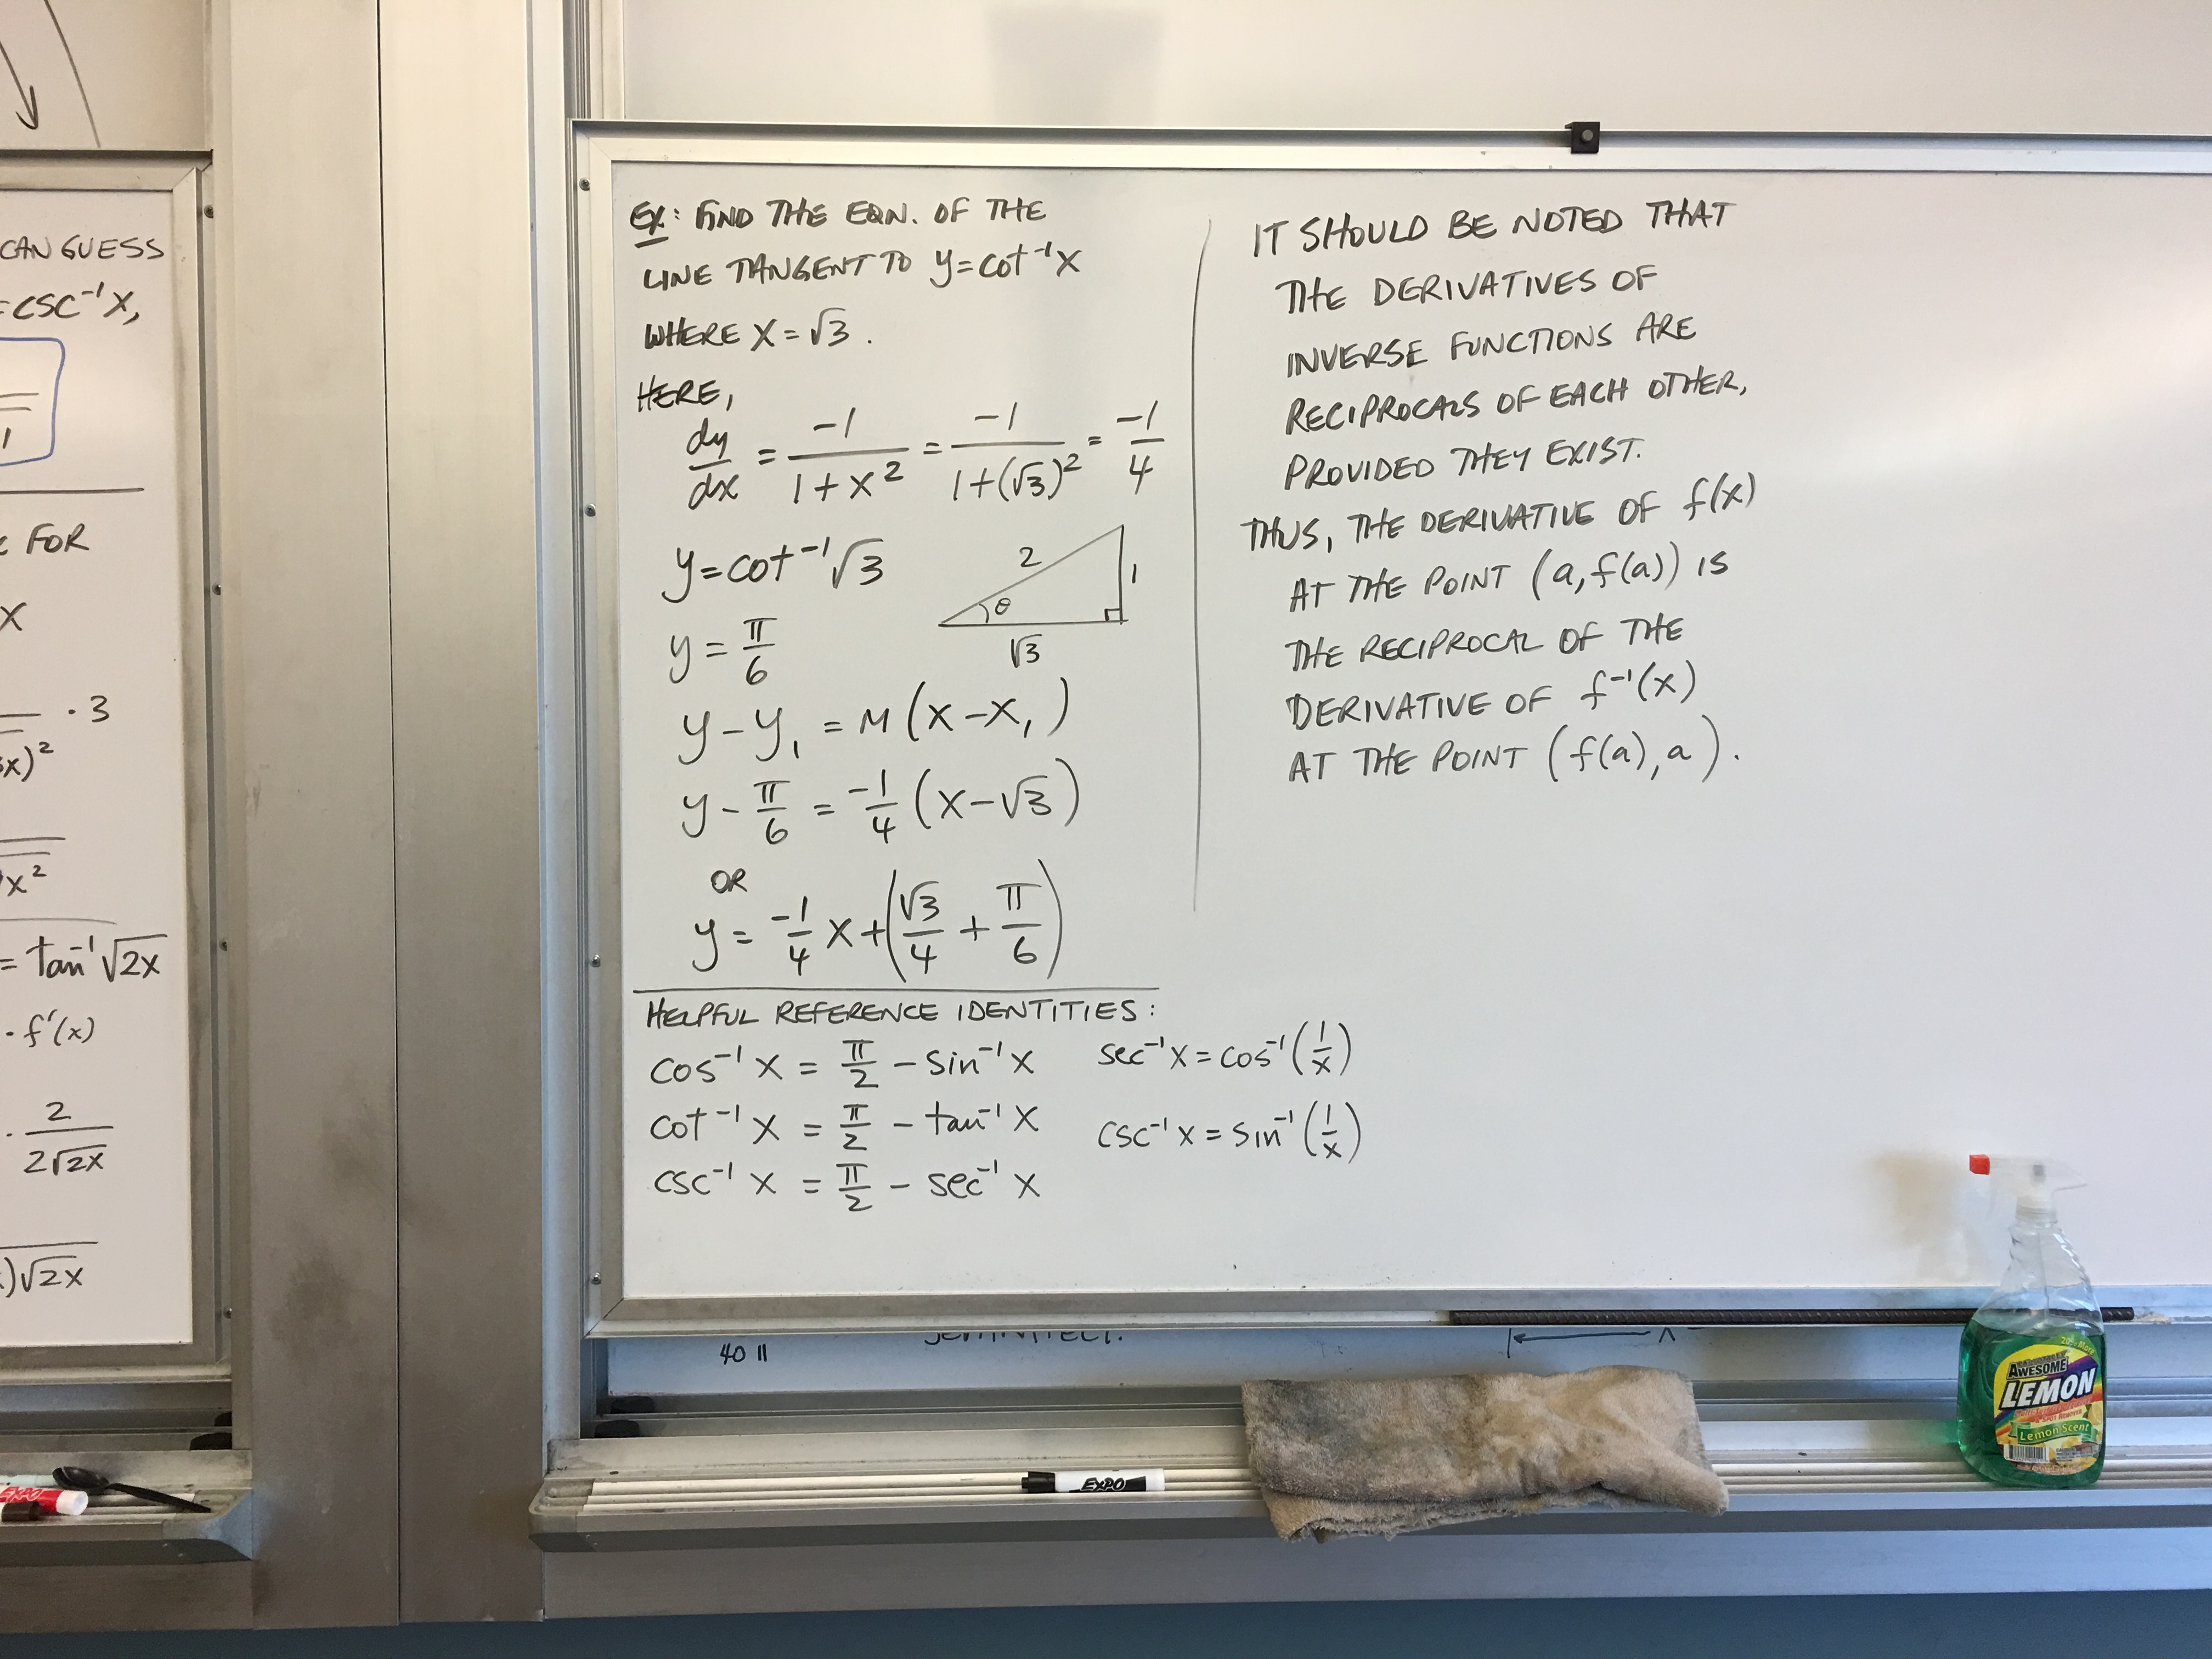 CAN GUESS
= csc⁻¹ x,
1
FOR
x
· 3
x)²
x²
= tan⁻¹ √2x
· f'(x)
· 2/(2√2x)
)√2x
EXPO
EX: FIND THE EQN. OF THE
LINE TANGENT TO y = cot⁻¹ x
WHERE x = √3 .
HERE,
dy/dx = -1/(1 + x²) = -1/(1 + (√3)²) = -1/4
y = cot⁻¹ √3
2
1
θ
√3
y = π/6
y - y₁ = M (x - x₁)
y - π/6 = -1/4 (x - √3)
OR
y = -1/4 x + (√3/4 + π/6)
HELPFUL REFERENCE IDENTITIES :
cos⁻¹ x = π/2 - sin⁻¹ x
cot⁻¹ x = π/2 - tan⁻¹ x
csc⁻¹ x = π/2 - sec⁻¹ x
sec⁻¹ x = cos⁻¹ (1/x)
csc⁻¹ x = sin⁻¹ (1/x)
IT SHOULD BE NOTED THAT
THE DERIVATIVES OF
INVERSE FUNCTIONS ARE
RECIPROCALS OF EACH OTHER,
PROVIDED THEY EXIST.
THUS, THE DERIVATIVE OF f(x)
AT THE POINT (a, f(a)) IS
THE RECIPROCAL OF THE
DERIVATIVE OF f⁻¹(x)
AT THE POINT (f(a), a) .
40 11
EXPO
20% More
AWESOME
LEMON
Lemon Scent